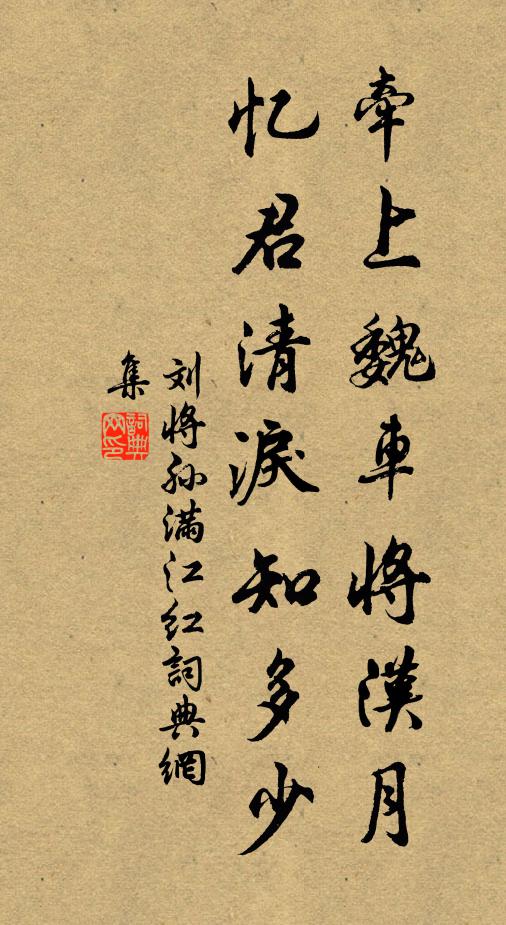 牵上魏车将汉月
忆君清泪知多少
刘将孙满江红词典网
集
词典网印